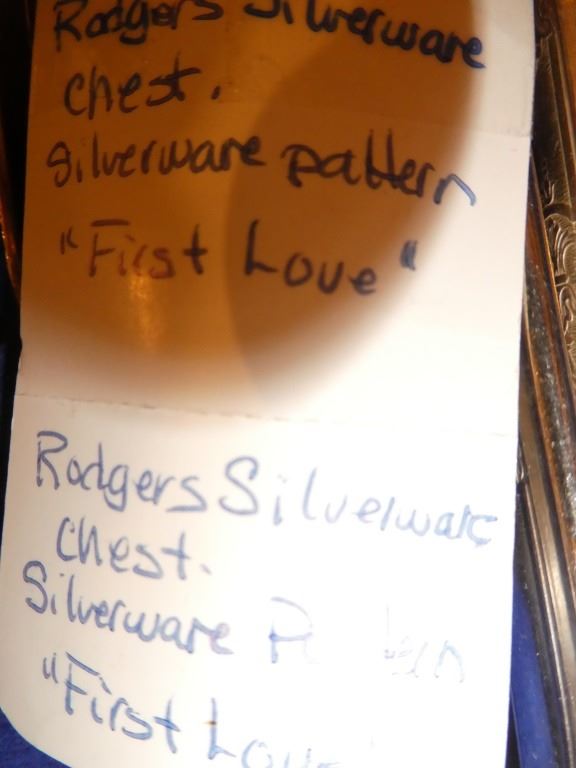 Rodgers Silverware
chest.
Silverware pattern
"First Love"
Rodgers Silverware
chest.
Silverware
"First Love